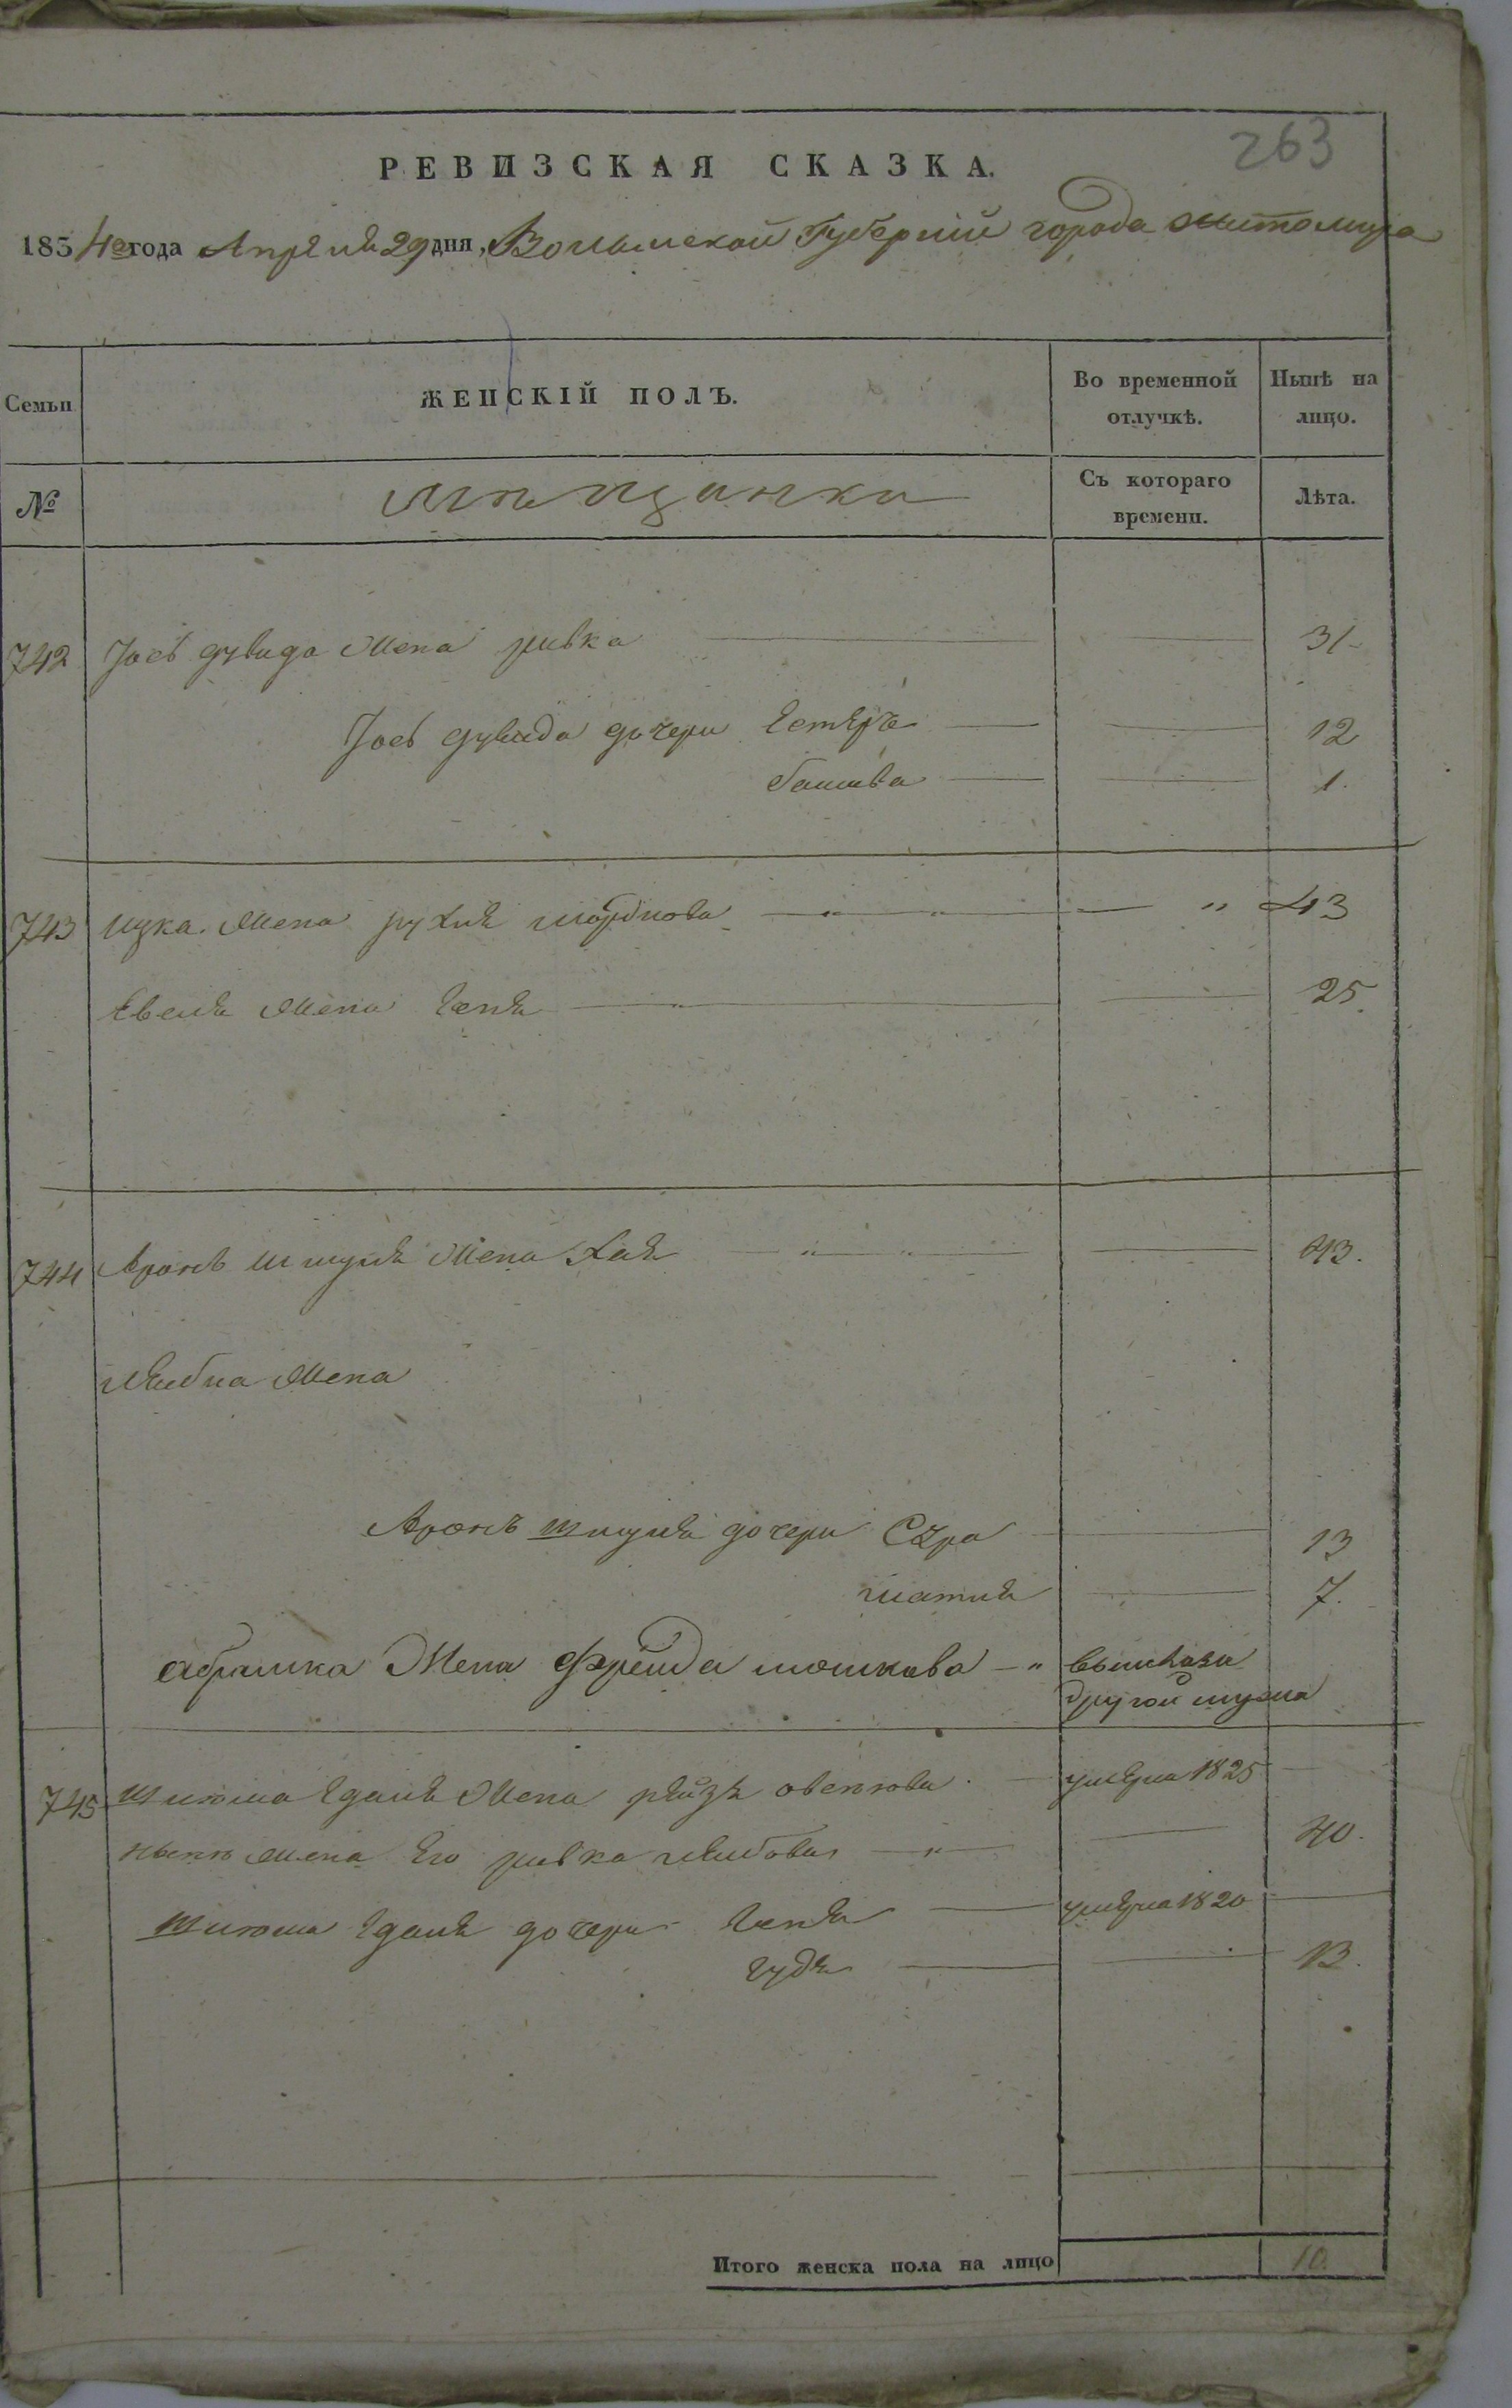 263
РЕВИЗСКАЯ СКАЗКА.
1854го года Апреля 29 дня, Волынской Губернии города Житомира
Семьи ЖЕНСКІЙ ПОЛЪ. Во временной отлучкѣ. Нынѣ на лицо.
№ Мещанки Съ котораго времени. Лѣта.
742 Іось дувида жена ривка 31
Іось дувида дочери Естеръ 12
башива 1.
743 ицка жена рухля 43
жена Геня 25
744 Аронъ шмуля жена Хая 43.
лейбиа жена
Аронъ шмуля дочери Сура 13
7.
абрамка жена Фрейда мошкова вышла за
другой мужа
745 Шлиома жена рейзя умерла 1825
ныне жена Его ривка лейбова 40.
Шлиома дочери Геня умерла 1820
13.
Итого женска пола на лицо 10.